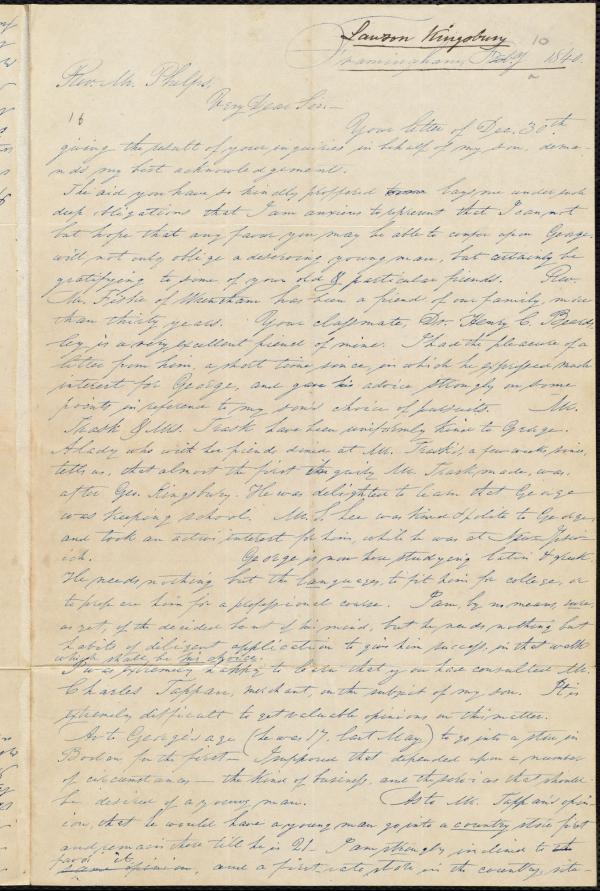 Lawson Kingsbury
10
Framingham, 1840.
Rev. Mr. Phelps,
16
Very Dear Sir,—
Your letter of Dec. 30th
giving the result of your enquiries in behalf of my son, dema-
nds my best acknowledgement.
The aid you have so kindly proffered lays me under such
deep obligations that I am anxious to represent that I can not
but hope that any favor you may be able to confer upon George,
will not only oblige a deserving young man, but certainly be
gratifying to some of your old & particular friends. Rev.
Mr. Fiske of Wrentham has been a friend of our family, more
than thirty years. Your classmate, Dr. Henry C. Beards-
ley is a very excellent friend of mine. I had the pleasure of a
letter from him, a short time since, in which he expressed much
interest for George, and gave his advice strongly on some
points in reference to my son's choice of pursuits. Mr.
Trask & Mrs. Trask have been uniformly kind to George.
A lady who with her friends dined at Mr. Trask's, a few weeks, since,
tells us, that almost the first enquiry Mr. Trask, made, was,
after Geo. Kingsbury. He was delighted to learn that George
was keeping school. Mr. Lee was kind & polite to George,
and took an active interest for him, while he was at New Ipsw-
ich. George is now here studying latin & greek
He needs nothing but the languages, to fit him for college, or
to prepare him for a professional course. I am, by no means, sure,
as yet, of the decided bent of his mind, but he needs nothing but
habits of diligent application to give him success, in that walk
which shall be his choice.
I was extremely happy to learn that you have consulted Mr.
Charles Tappan, merchant, on the subject of my son. It is
extremely difficult to get valuable opinions on this matter.
As to George's age (he was 17, last May) to go into a store in
Boston for the first— I supposed that depended upon a number
of circumstances — the kind of business, and the services that should
be desired of a young man. As to Mr. Tappan's opin-
ion, that he would have a young man go into a country store first
and remain there till he is 21. I am strongly inclined to the
favor it
same opinion, and a first-rate store in the country, situ-